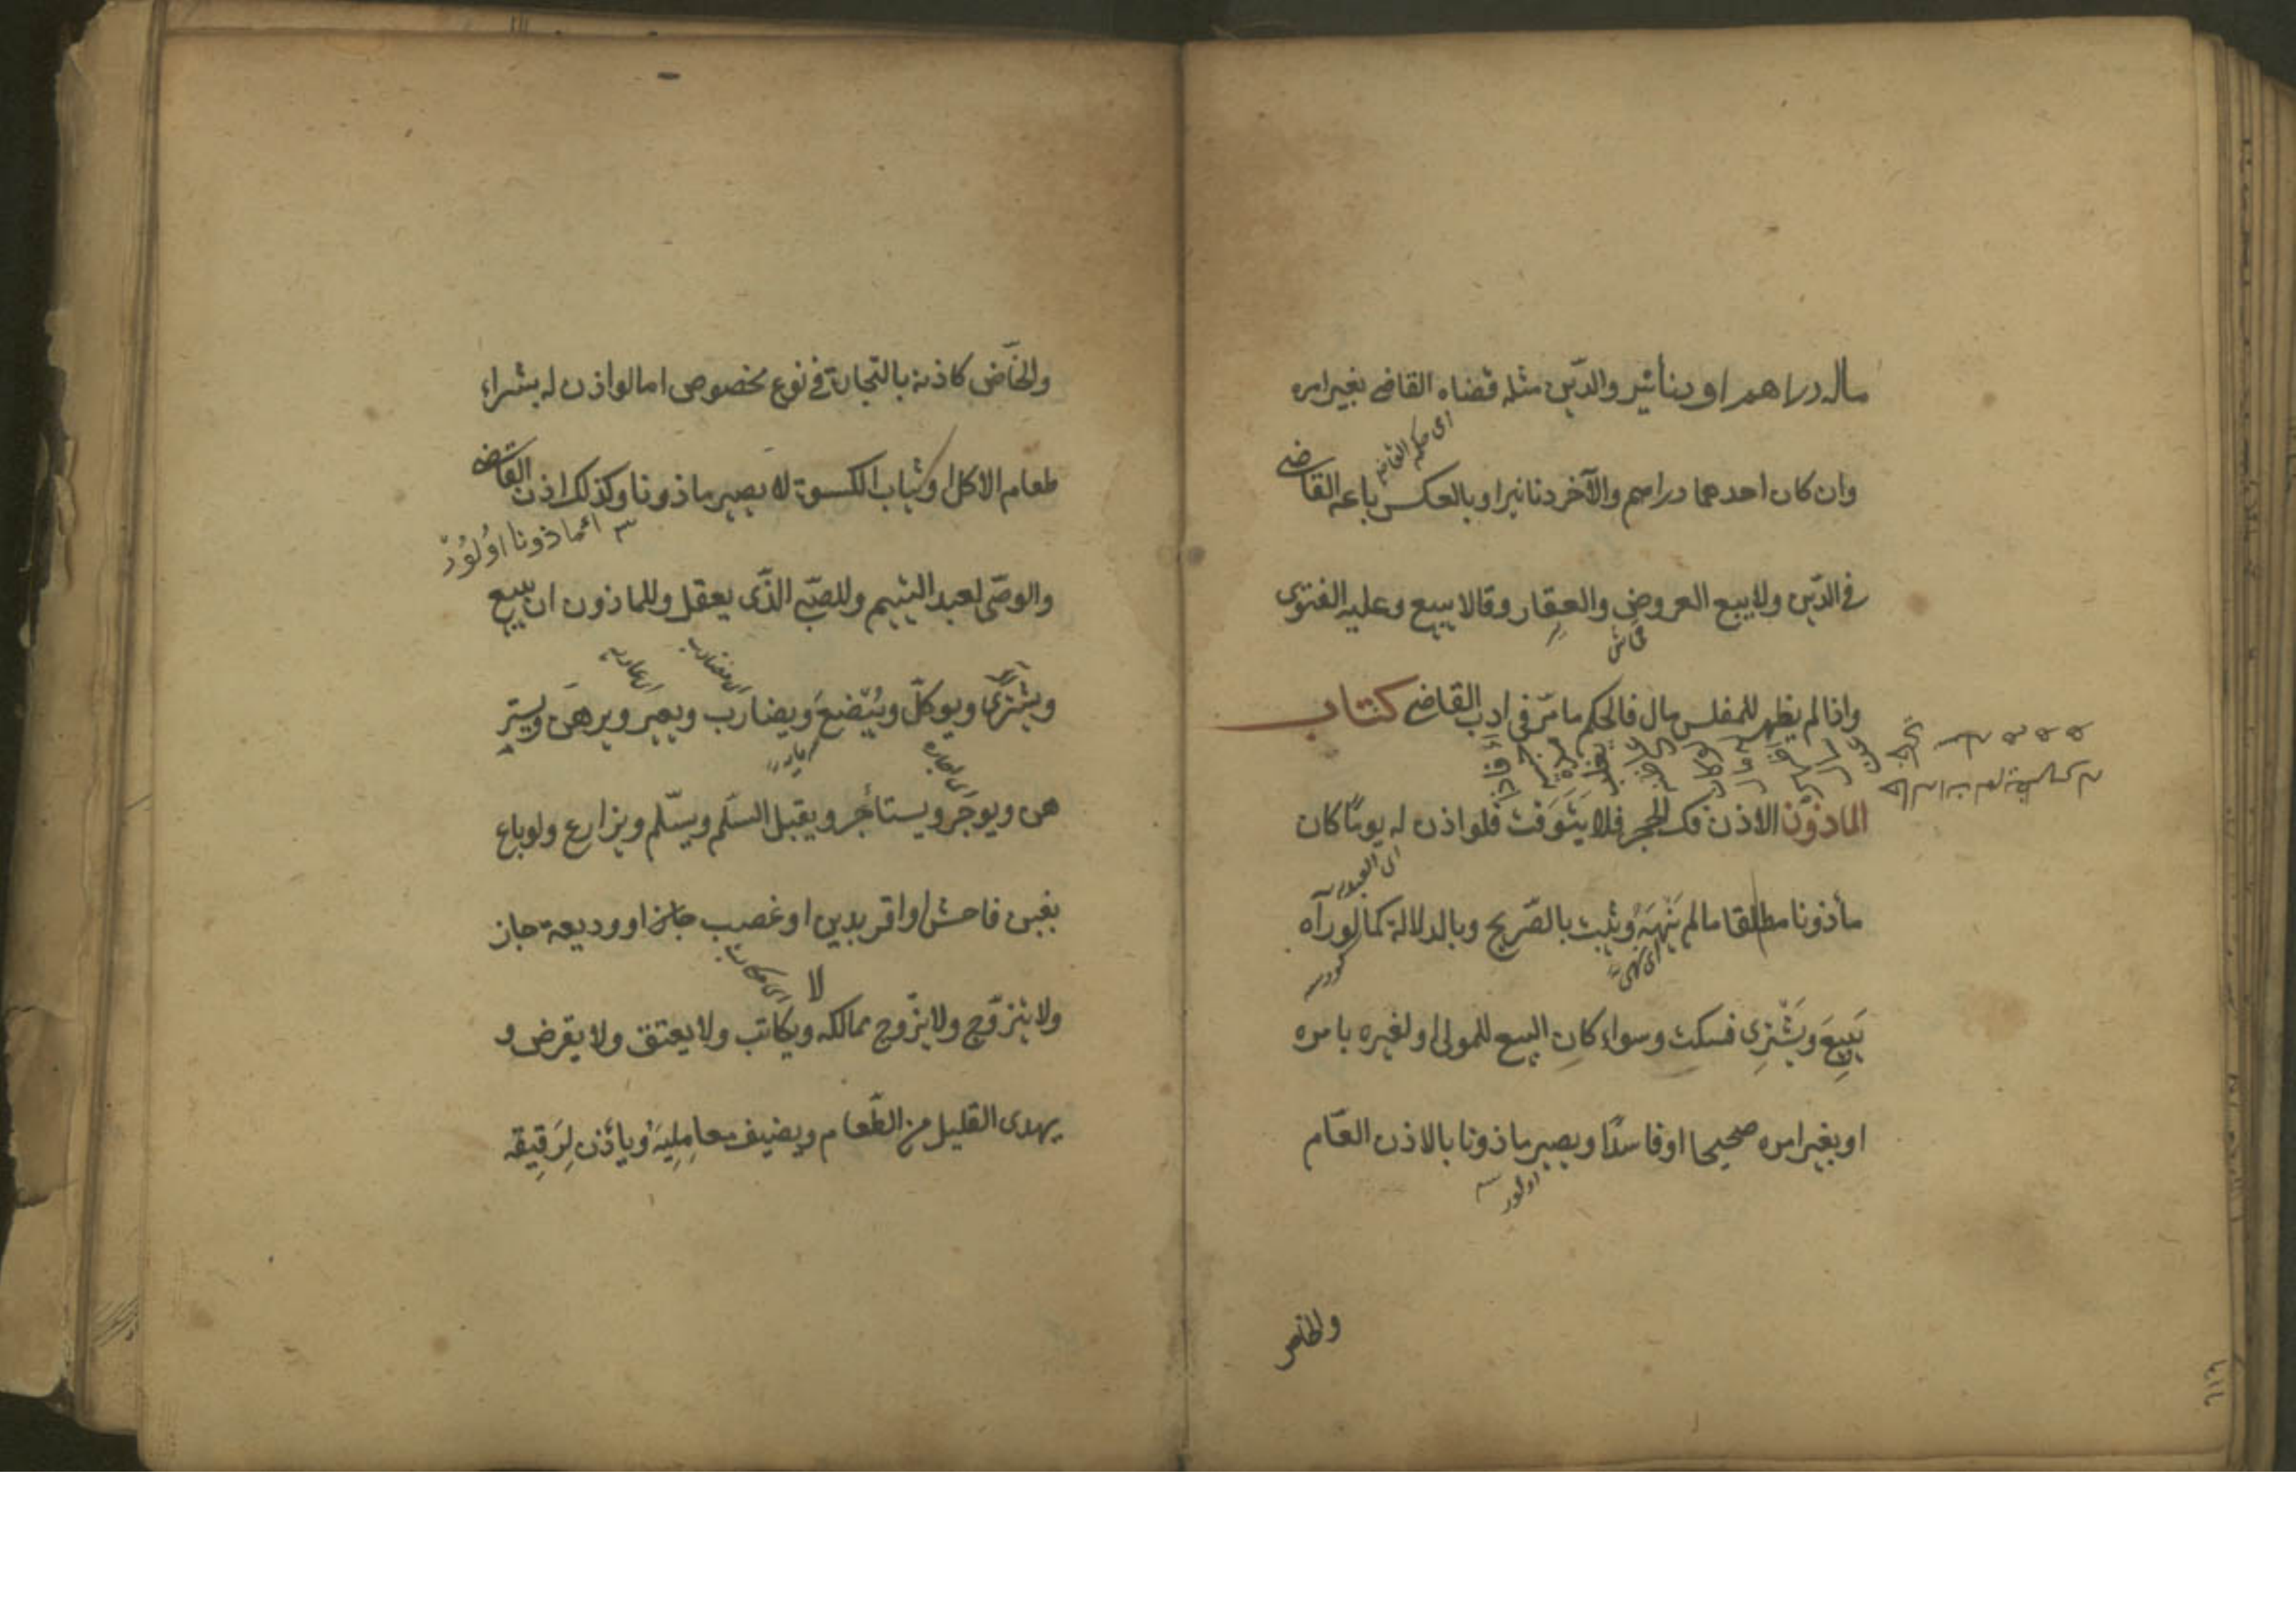 ماله دراهم او دنانير والدّين مثله قضاه القاضى بغير امره
اى حكمه القاضى
وان كان احدهما دراهم والآخر دنانير او بالعكس باعه القاضى
فى الدّين ولا يبيع العروض والعقار وقالا يبيع وعليه الفتوى
قماش
واذا لم يظهر للمفلس مال فالحكم ما مرّ فى ادب القاضى كتاب
الماذون الاذن فك الحجر فلا يتوقت فلو اذن له يومًا كان
اى العبد
مأذونا مطلقا ما لم ينهه ويثبت بالصّريح وبالدلالة كما لو رآه
يبيع ويشترى فسكت وسواء كان البيع للمولى او لغيره بامره
او بغير امره صحيحا او فاسدًا ويصير ماذونا بالاذن العّام
اولور
والخاص
والخّاض كاذنه بالتجارة فى نوع مخصوص اما لو اذن له بشراء
طعام الاكل او ثياب الكسوة لا يصير ماذونا وكذلك اذن القاضى
ماذونا اولور
والوصّى لعبد اليتيم وللصّبى الذّى يعقل وللماذون ان يبيع
ويشترى ويوكّل ويبضع ويضارب ويعير ويرهن ويستر
هن ويوجر ويستأجر ويقبل السّلم ويسّلم ويزارع ولو باع
بغبن فاحش او اقر بدين او غصب جاز او وديعة جاز
لا
ولا يتزوّج ولا يزّوج ممالكه ويكاتب ولا يعتق ولا يقرض و
يهدى القليل من الطّعام ويضيف معامليه ويأذن لرقيقه